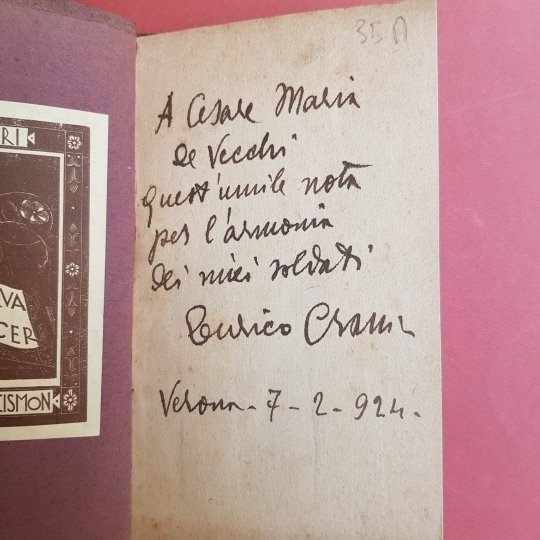 35 A
A Cesare Maria
de Vecchi
quest'umile nota
per l'armonia
dei miei soldati
Enrico
Verona - 7 - 2 - 924.
RI
VA
CER
CISMON